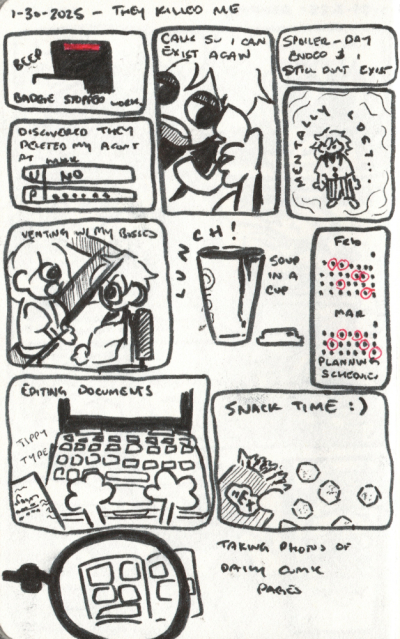 1-30-2025 - THEY KILLED ME
BEEP
BADGE STOPPED WORK
DISCOVERED THEY
DELETED MY ACOUNT
AT WORK
U NO
P
CALLS SO I CAN
EXIST AGAIN
SPOILER - DAY
ENDED & I
STILL DON'T EXIST
MENTALLY LOST...
VENTING W/ MY BESTIES
LUNCH!
SOUP
IN A
CUP
FEB
MAR
PLANNING
SCHEDULES
EDITING DOCUMENTS
TIPPY
TYPE
SNACK TIME :)
TAKING PHOTOS OF
DAILY COMIC
PAGES